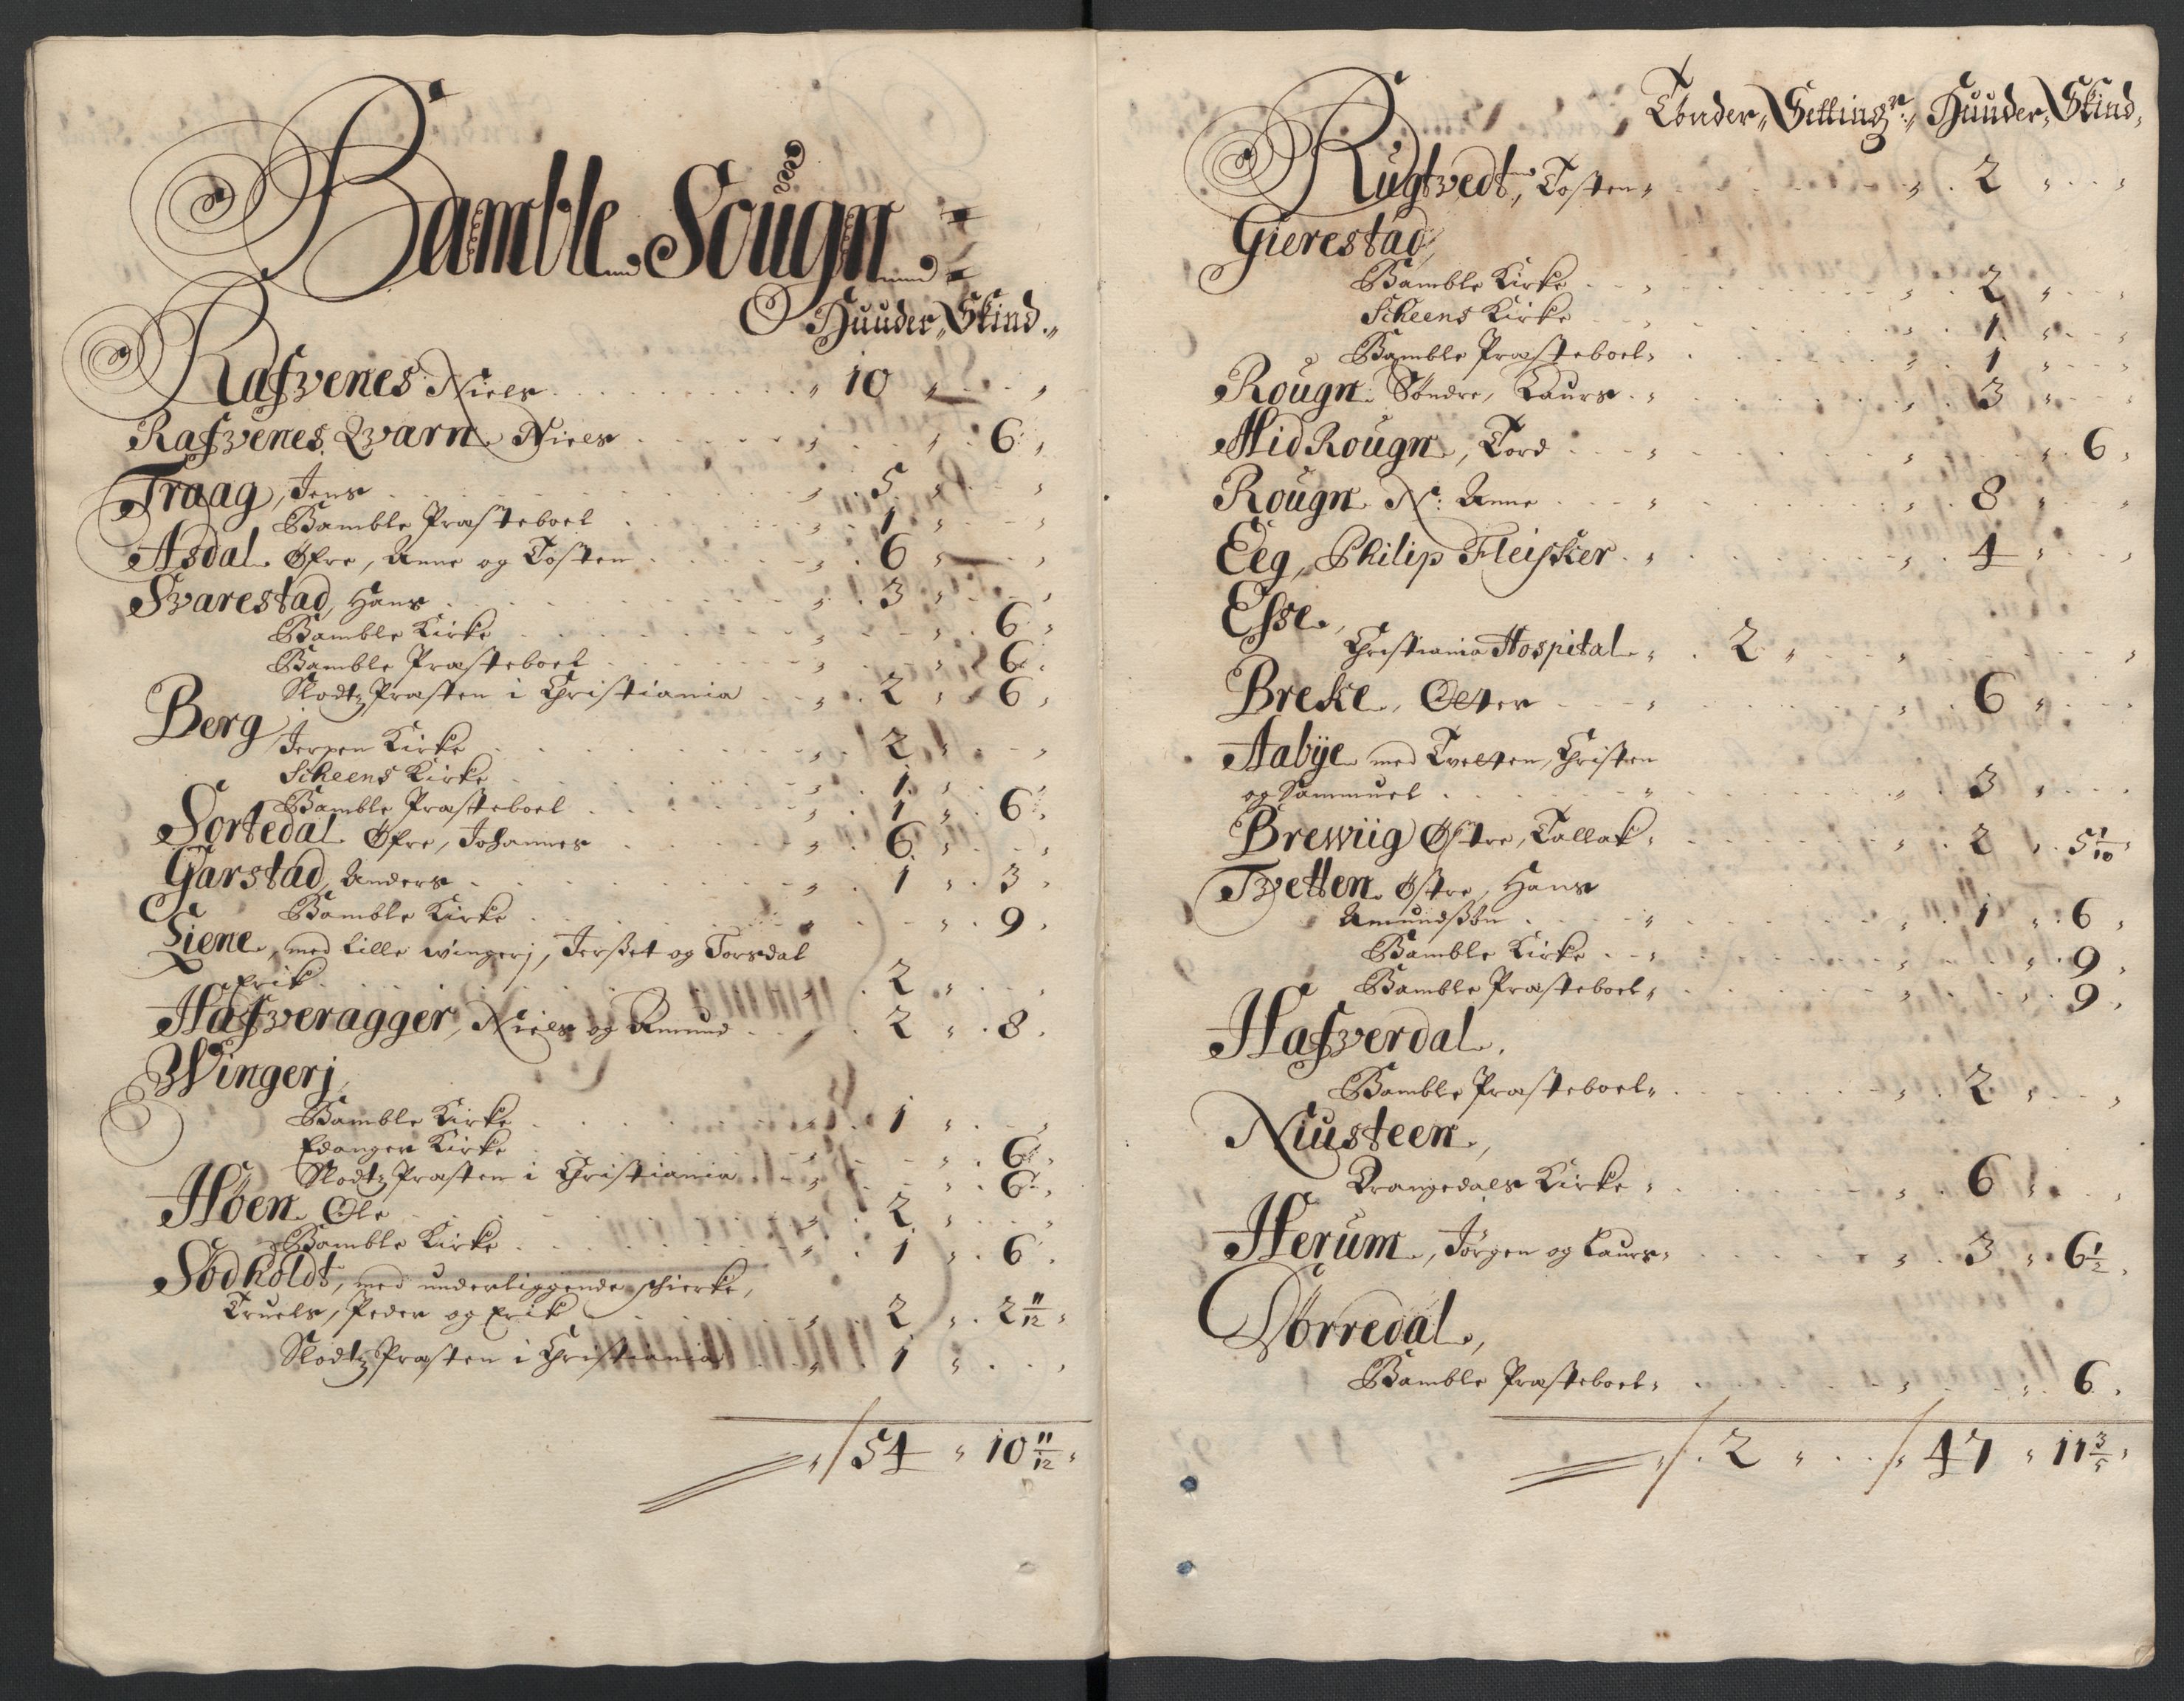 Bamble Sougn
Huuder, Skind.
Rafvenes Niels 10
Rafvenes Qvarn Niels 6
Traag, Jens 5
Bamble Præsteboel 1
Asdal Øfre, Anne og Tosten 6
Svarestad, Hans 3
Bamble Kirke 6
Bamble Præsteboel 6
Slodtz Præsten i Christiania 2 6
Berg
Jerpen Kirke 2
Scheens Kirke 1
Bamble Præsteboel 1 6
Sortedal Øfre, Johannes 6
Garstad, Anders 1 3
Bamble Kirke 9
Liene, med Lille Wingerj, Jerset og Torsdal
Erik 2
Hafveragger, Niels og Amund 2 8
Wingerj
Bamble Kirke 1
Edanger Kirke 6
Slodtz Præsten i Christiania 6
Høen Ole 2
Bamble Kirke 1 6
Sødholdt, med underliggende schierke,
Truels, Peder og Erik 2 2 11/12
Slodtz Præsten i Christiania 1
54 10 11/12
Tønder, Setting:, Huuder, Skind,
Rugtvedt, Tosten 2
Gierestad
Bamble Kirke 2
Scheens Kirke 1
Bamble Præsteboel 1
Rougn Søndre, Laurs 3
Mid Rougn, Tord 6
Rougn N: Anne 8
Eeg, Philip Fleisker 4
Esse,
Christiania Hospital 2
Breke, Olter 6
Aabÿe med Tvetten, Christen
og Sammuel 3
Brewiig Østre, Tallak 2 5 1/10
Tvetten Østre, Hans
Amundsøn 1 6
Bamble Kirke 9
Bamble Præsteboel 9
Hafverdal,
Bamble Præsteboel 2
Niusteen,
Drangedals Kirke 6
Herum, Jørgen og Laurs 3 6 1/2
Dørredal,
Bamble Præsteboel 6
2 47 11 3/5